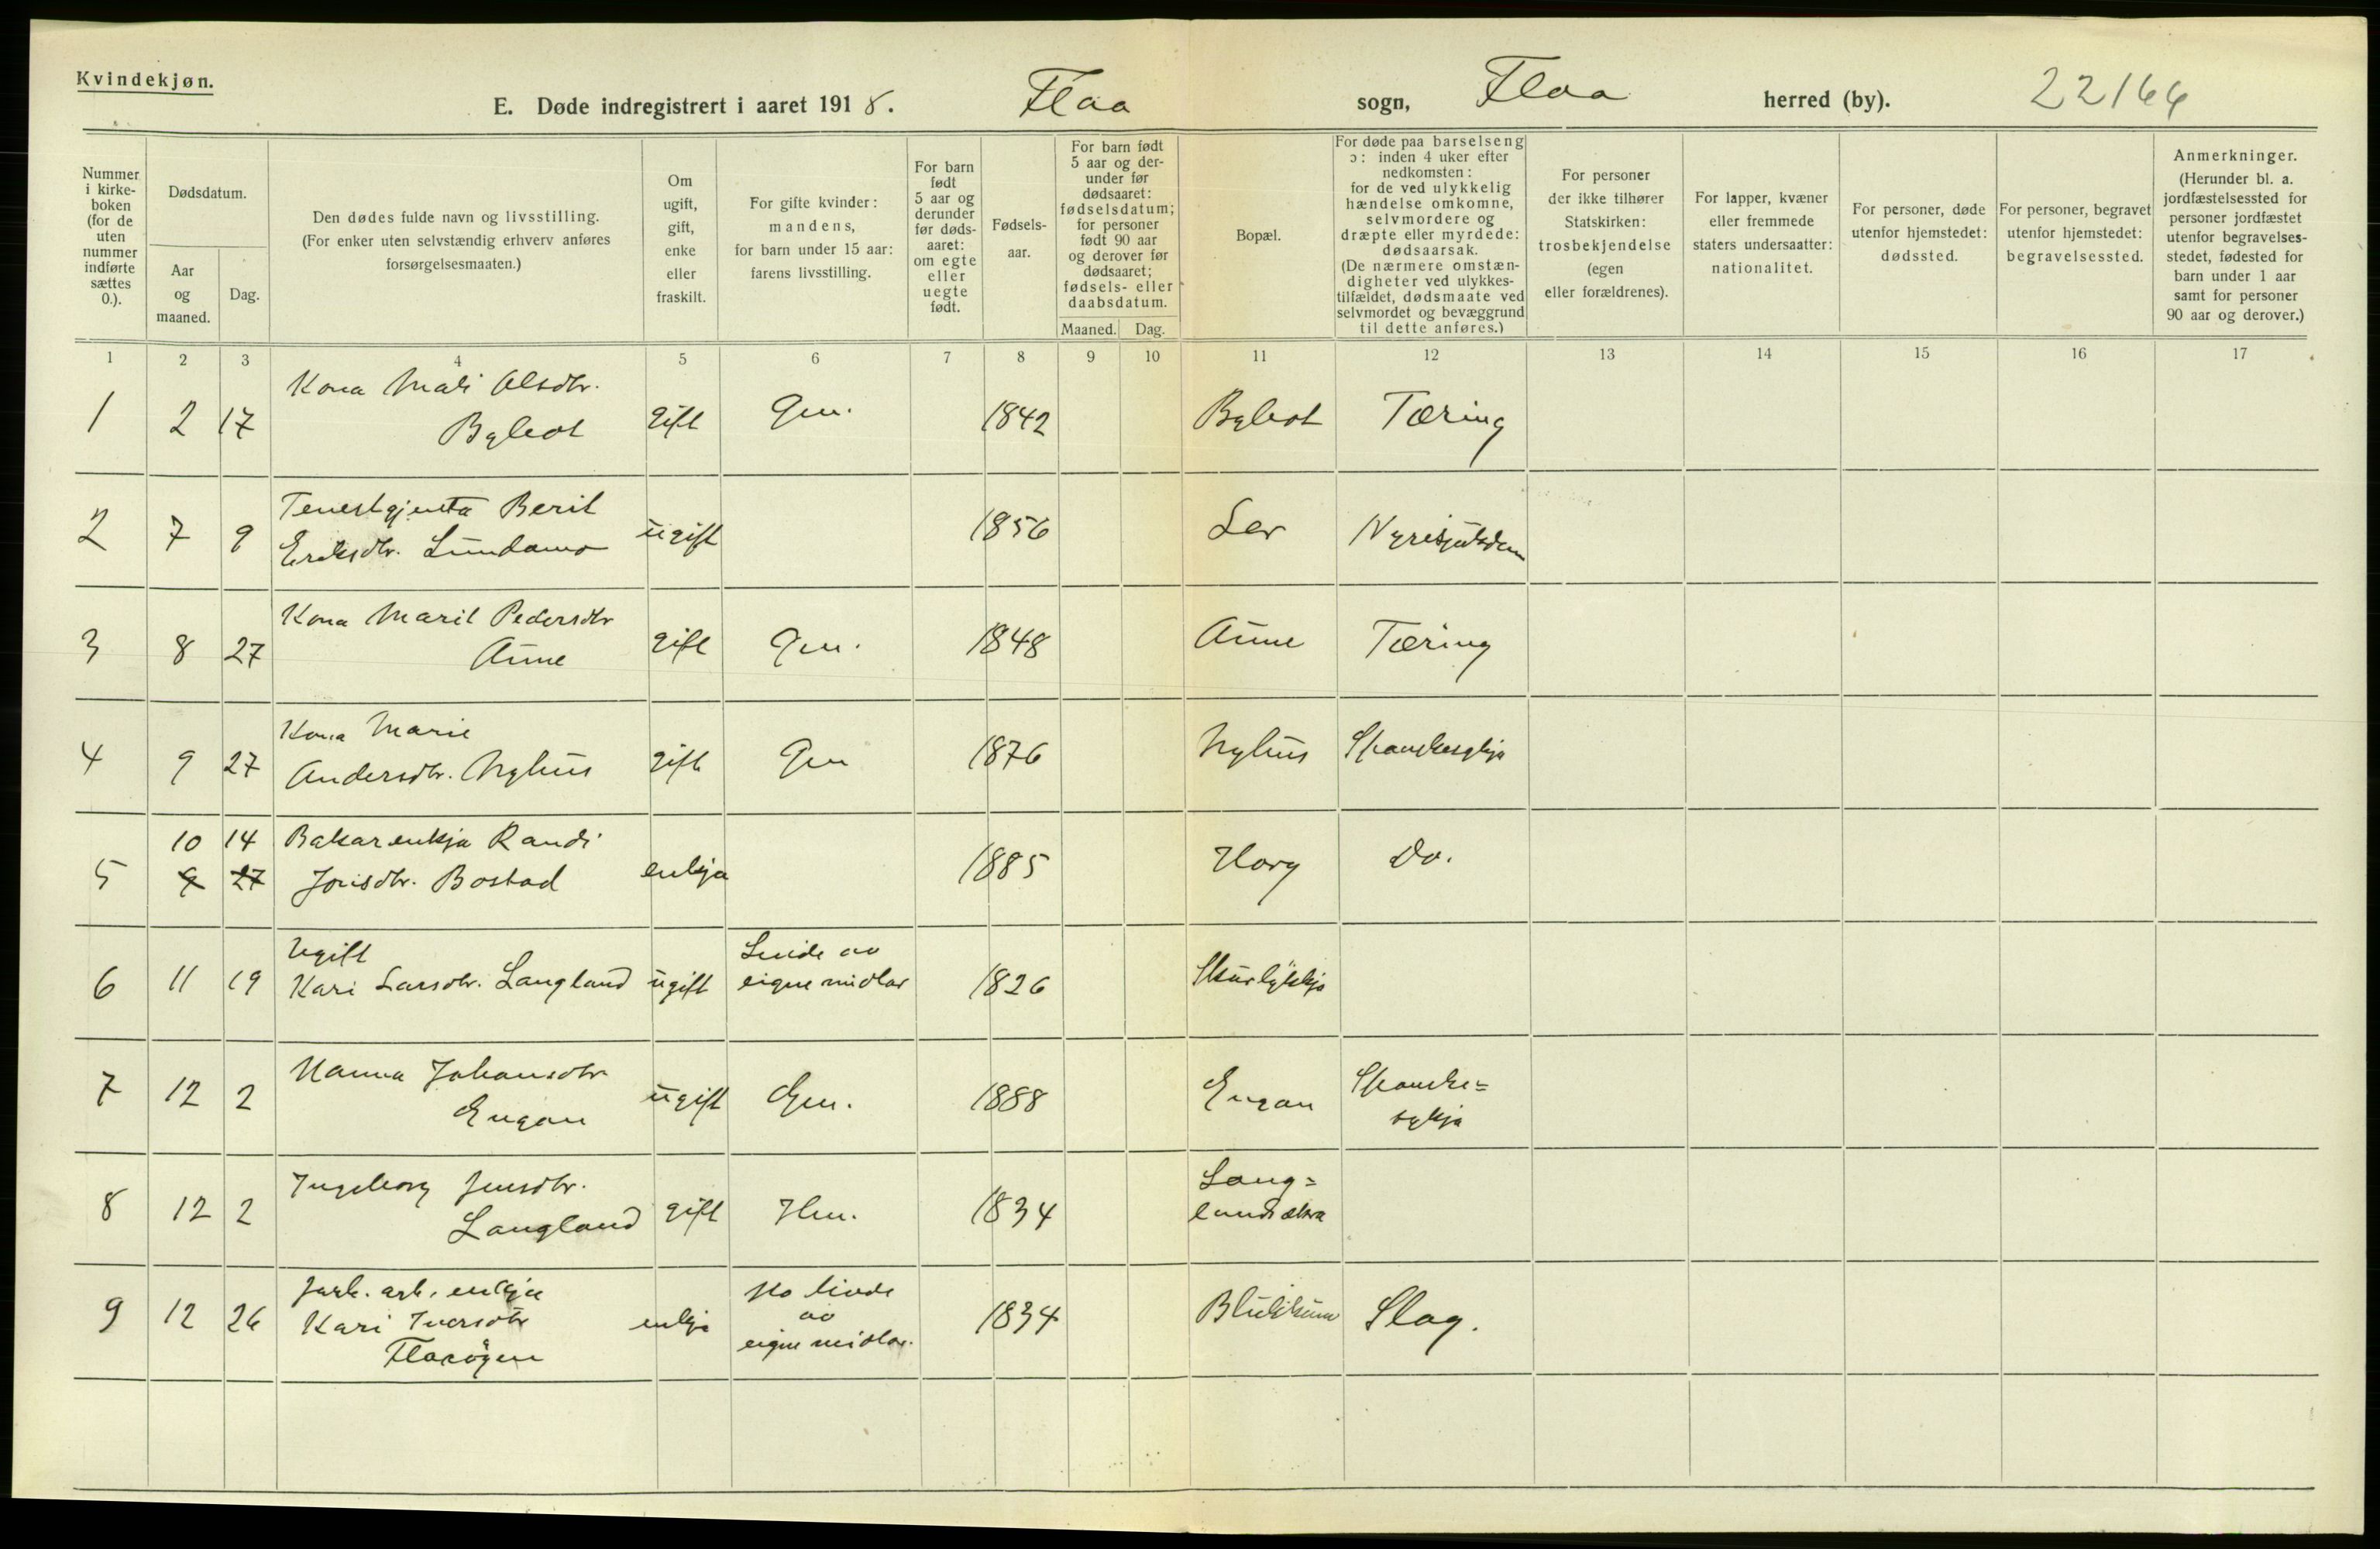 Kvindekjøn.
E. Døde indregistrert i aaret 1918. Flaa sogn, Flaa herred (by). 22166
Nummer i kirke-boken (for de uten nummer indførte sættes 0.).
Dødsdatum.
Aar og maaned.
Dag.
Den dødes fulde navn og livsstilling.
(For enker uten selvstændig erhverv anføres
forsørgelsesmaaten.)
Om ugift, gift, enke eller fraskilt.
For gifte kvinder: mandens, for barn under 15 aar: farens livsstilling.
For barn født 5 aar og derunder før døds-aaret: om egte eller uegte født.
Fødsels-aar.
For barn født 5 aar og der-under før dødsaaret: fødselsdatum; for personer født 90 aar og derover før dødsaaret; fødsels- eller daabsdatum.
Maaned. Dag.
Bopæl.
For døde paa barselseng ɔ: inden 4 uker efter nedkomsten: for de ved ulykkelig hændelse omkomne, selvmordere og dræpte eller myrdede: dødsaarsak. (De nærmere omstæn-digheter ved ulykkes-tilfældet, dødsmaate ved selvmordet og bevæggrund til dette anføres.)
For personer der ikke tilhører Statskirken: trosbekjendelse (egen eller forældrenes).
For lapper, kvæner eller fremmede staters undersaatter: nationalitet.
For personer, døde utenfor hjemstedet: dødssted.
For personer, begravet utenfor hjemstedet: begravelsessted.
Anmerkninger. (Herunder bl. a. jordfæstelsessted for personer jordfæstet utenfor begravelses-stedet, fødested for barn under 1 aar samt for personer 90 aar og derover.)
1 2 3 4 5 6 7 8 9 10 11 12 13 14 15 16 17
Kona Mali Olsdtr.
1 2 17 Bybrot gift Gm. 1842 Bybrot Tæring
Tenestgjenta Berit
2 7 9 Eriksdtr. Lundamo ugift 1856 Ler
Kona Marit Pedersdtr
3 8 27 Aune gift Gm. 1848 Aune Tæring
Kona Marie
4 9 27 Andersdtr. Nyhus gift Gm 1876 Nyhus Spanskesykja
10 14 Bakarenkja Randi
5 9 27 Jonsdtr. Bostad enkja 1885 Horg Do.
Ugift Livde av
6 11 19 Kari Larsdtr. Langland ugift eigne midlar 1826
Hanna Johansdtr Spanske=
7 12 2 Engan ugift Gm. 1888 Engan sykja
Ingeborg Jensdtr. Lang=
8 12 2 Langland gift Hm. 1834
arb. enkja Ho livde
9 12 26 Kari Iversdtr enkja av 1834 Slag.
Flaaøyen eigne midlar.